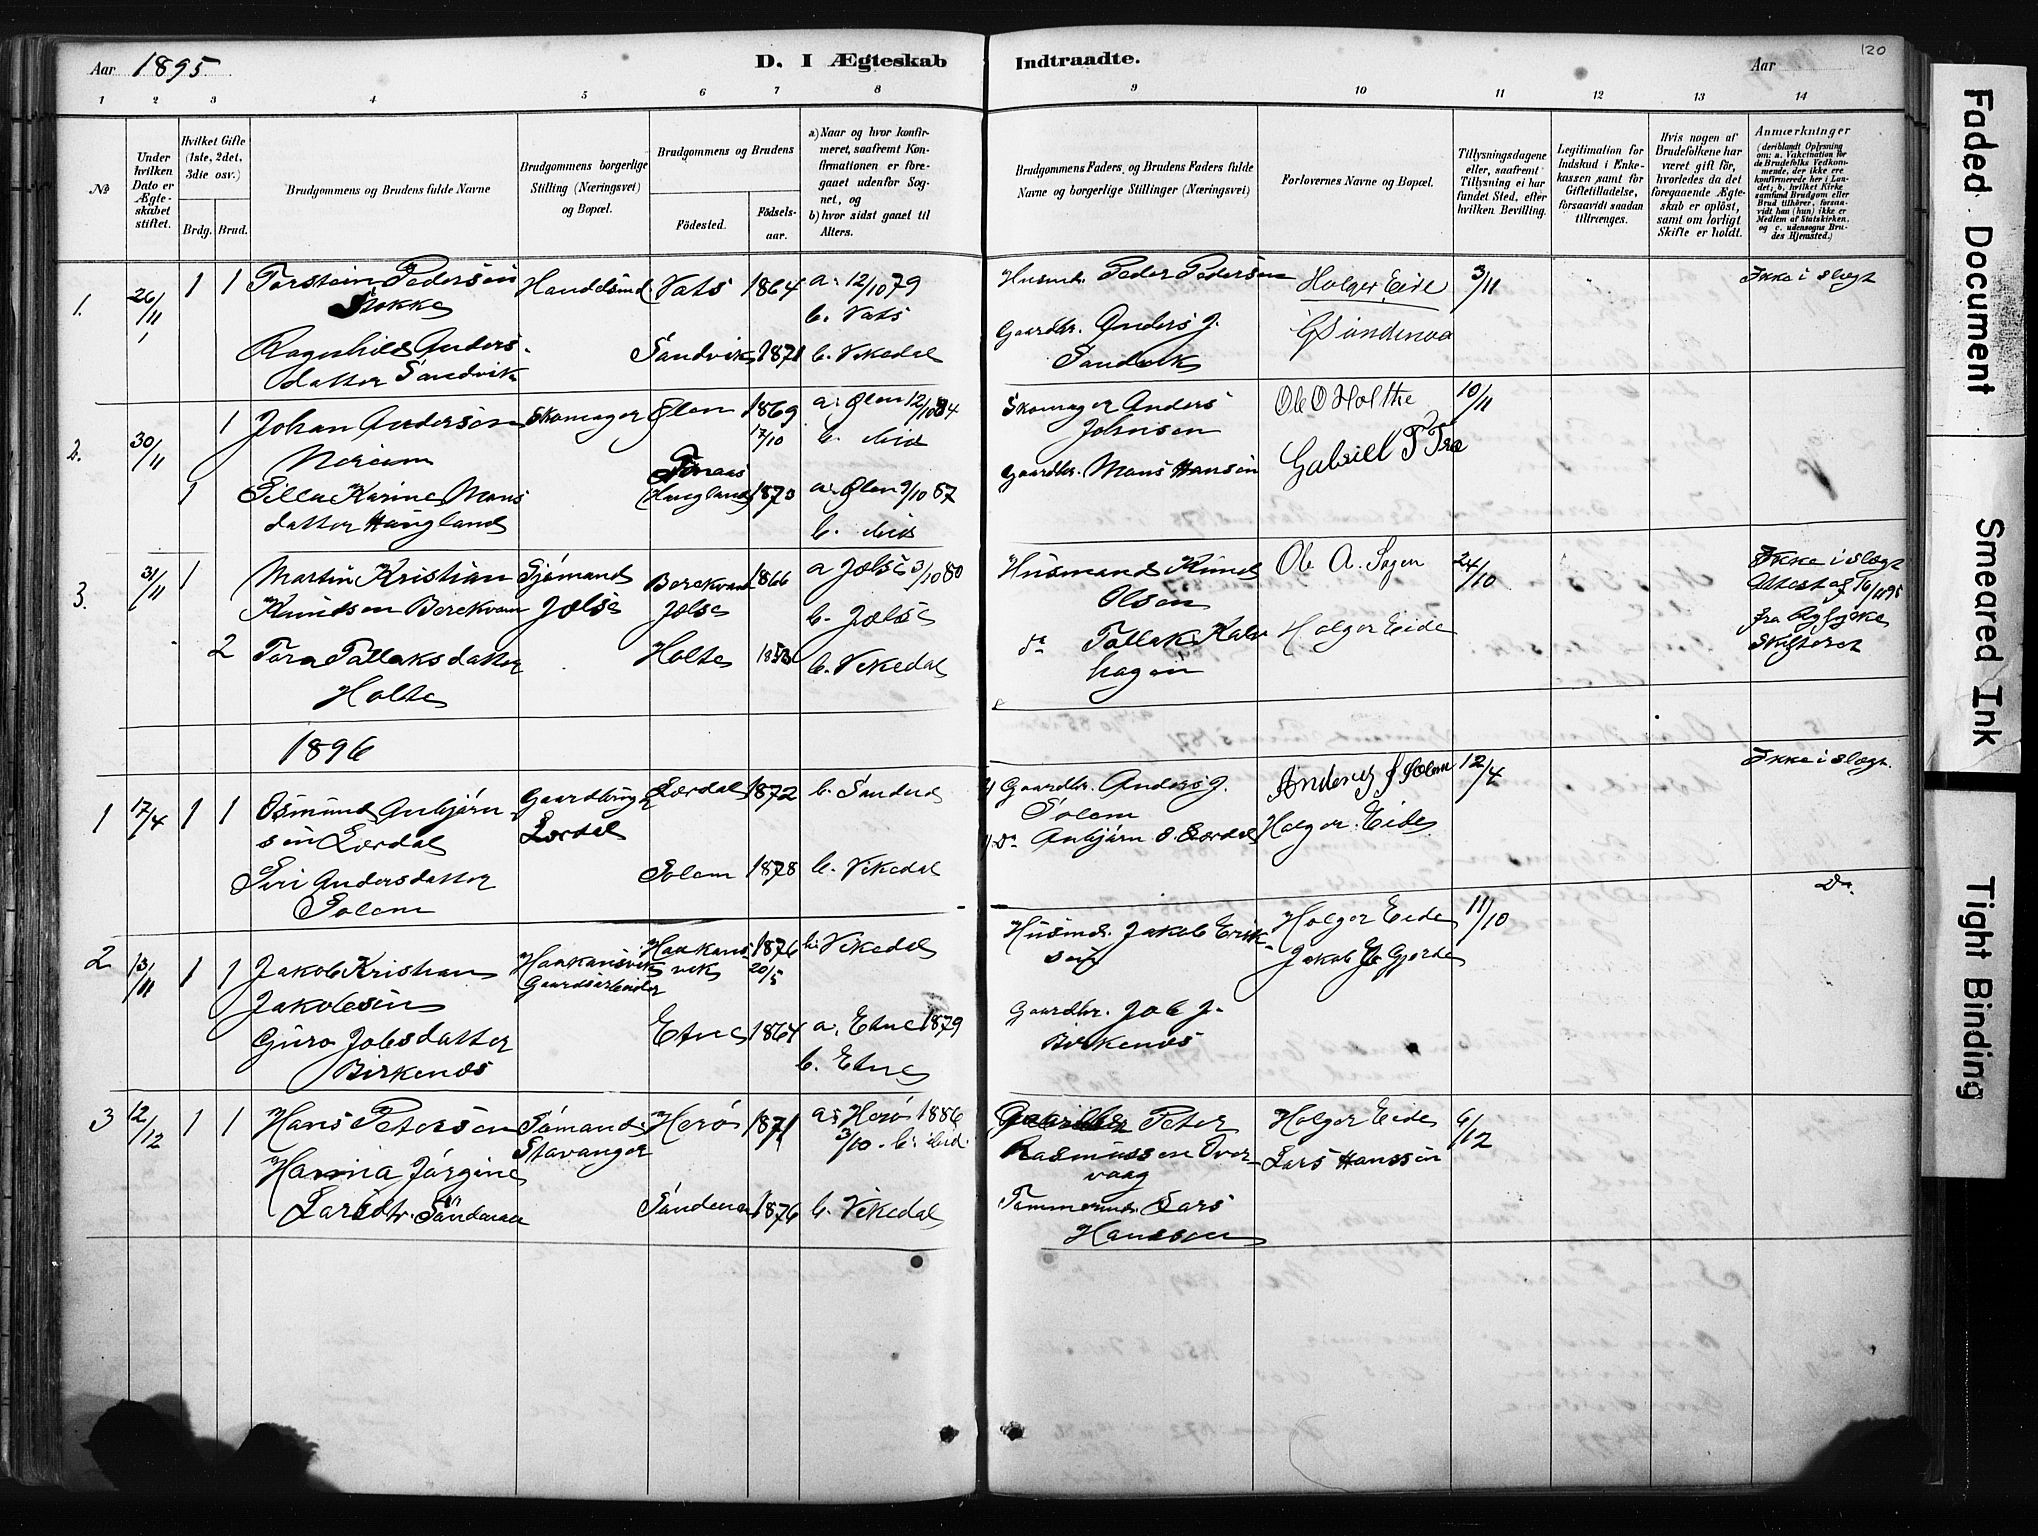 Aar 1895
D. I Ægteskab Indtraadte.
Aar
120
1 2 3 4 5 6 7 8 9 10 11 12 13 14
No
Under hvilken Dato er Ægteskabet stiftet.
Hvilket Gifte (1ste, 2det, 3die osv.)
Brdg. Brud.
Brudgommens og Brudens fulde Navne
Brudgommens borgerlige Stilling (Næringsvei) og Bopæl.
Brudgommens og Brudens
Fødested.
Fødselsaar.
a) Naar og hvor konfirmeret, saafremt Konfirmationen er foregaaet udenfor Sognet, og
b) hvor sidst gaaet til Alters.
Brudgommens Faders og Brudens Faders fulde Navne og borgerlige Stillinger (Næringsvei)
Forlovernes Navne og Bopæl.
Tillysningsdagene eller, saafremt Tillysning ei har fundet Sted, efter hvilken Bevilling.
Legitimation for Indskud i Enkekassen samt for Giftetilladelse, forsaavidt saadan tiltrænges.
Hvis nogen af Brudefolkene har været gift før, hvorledes da det foregaaende Ægteskab er opløst, samt om lovligt Skifte er holdt.
Anmærkninger (deriblandt Oplysning om: a. Vakcination for de Brudefolks Vedkommende, der ikke ere konfirmerede her i Landet; b. hvilket Kirkesamfund Brudgom eller Brud tilhører, forsaavidt han (hun) ikke er Medlem af Statskirken, og c. udensogns Brudes Hjemsted.)
1. 26/11 1 1 Torstein Pedersen Vats 1864 a: 12/10 79 Husmd. Peder Pedersen Holger Eide 3/11 Ikke i slegt
Stokke b. Vats
Ragnhild Anders- Sandvik 1871 b. Vikedal Gaardbr. Anders J.
datter Sandvik Sandvik
2. 30/11 1 Johan Andersen Skomager Ølen 1869 17/10 a: Ølen 12/10 84 Skomager Anders Ole O Holthe 10/11
b. ibid Johnsen
1 Karine Mons- Haugland 1870 a: Ølen 9/10 87 Gaardbr. Mons Hansen Gabriel T
datter Haugland b. ibid
3. 31/11 1 Martin Kristian Sjømand Berekvam 1866 a Jølse 3/10 80 Husmand Knud Ole A. 24/10 Ikke i slegt
Knudsen Berekvam Jølse Jølse b. Jølse Olsen Attest af 16/11 95
2 Tora Tollaksdatter Holte b. Vikedal do Tollak Holger Eide fra Ryfylke
Holte hagen Skifteret
1896
1 17/4 1 1 Osmund Anbjørn- Gaardbruger Lørdal 1872 b. Sandeid Gaardbr. Anders J. Anders J Solem 12/4 Ikke i slegt.
sen Lørdal Lørdal Solem
Siri Andersdatter Solem 1878 b. Vikedal Do Anbjørn O. Lørdal Holger Eide
Solem
2 13/11 1 1 Jakob Kristian Haakansvik Haakansvik 1876 20/5 b: Vikedal Husmd. Jakob Erik- Holger Eide 11/10 Do.
Jakobsen Gaardsarbeider sen Jakob Gjerde
Guro Jobsdatter Etne 1864 a. Etne 1879 Gaardbr. Job J.
Birkenes b. Etne Birkenes
3 12/12 1 1 Hans Petersen Sømand Herø 1871 a: Herø 1886 Peter Holger Eide 6/12
Stavanger 3/10. b: ibid. Rasmussen Over- Lars Hanssen
Hanna Jørgine vaag
Larsdtr. Søndenaa Søndenaa 1876 b. Vikedal Tømmermd. Lars
Hanssen
Faded Document
Smeared Ink
Tight Binding